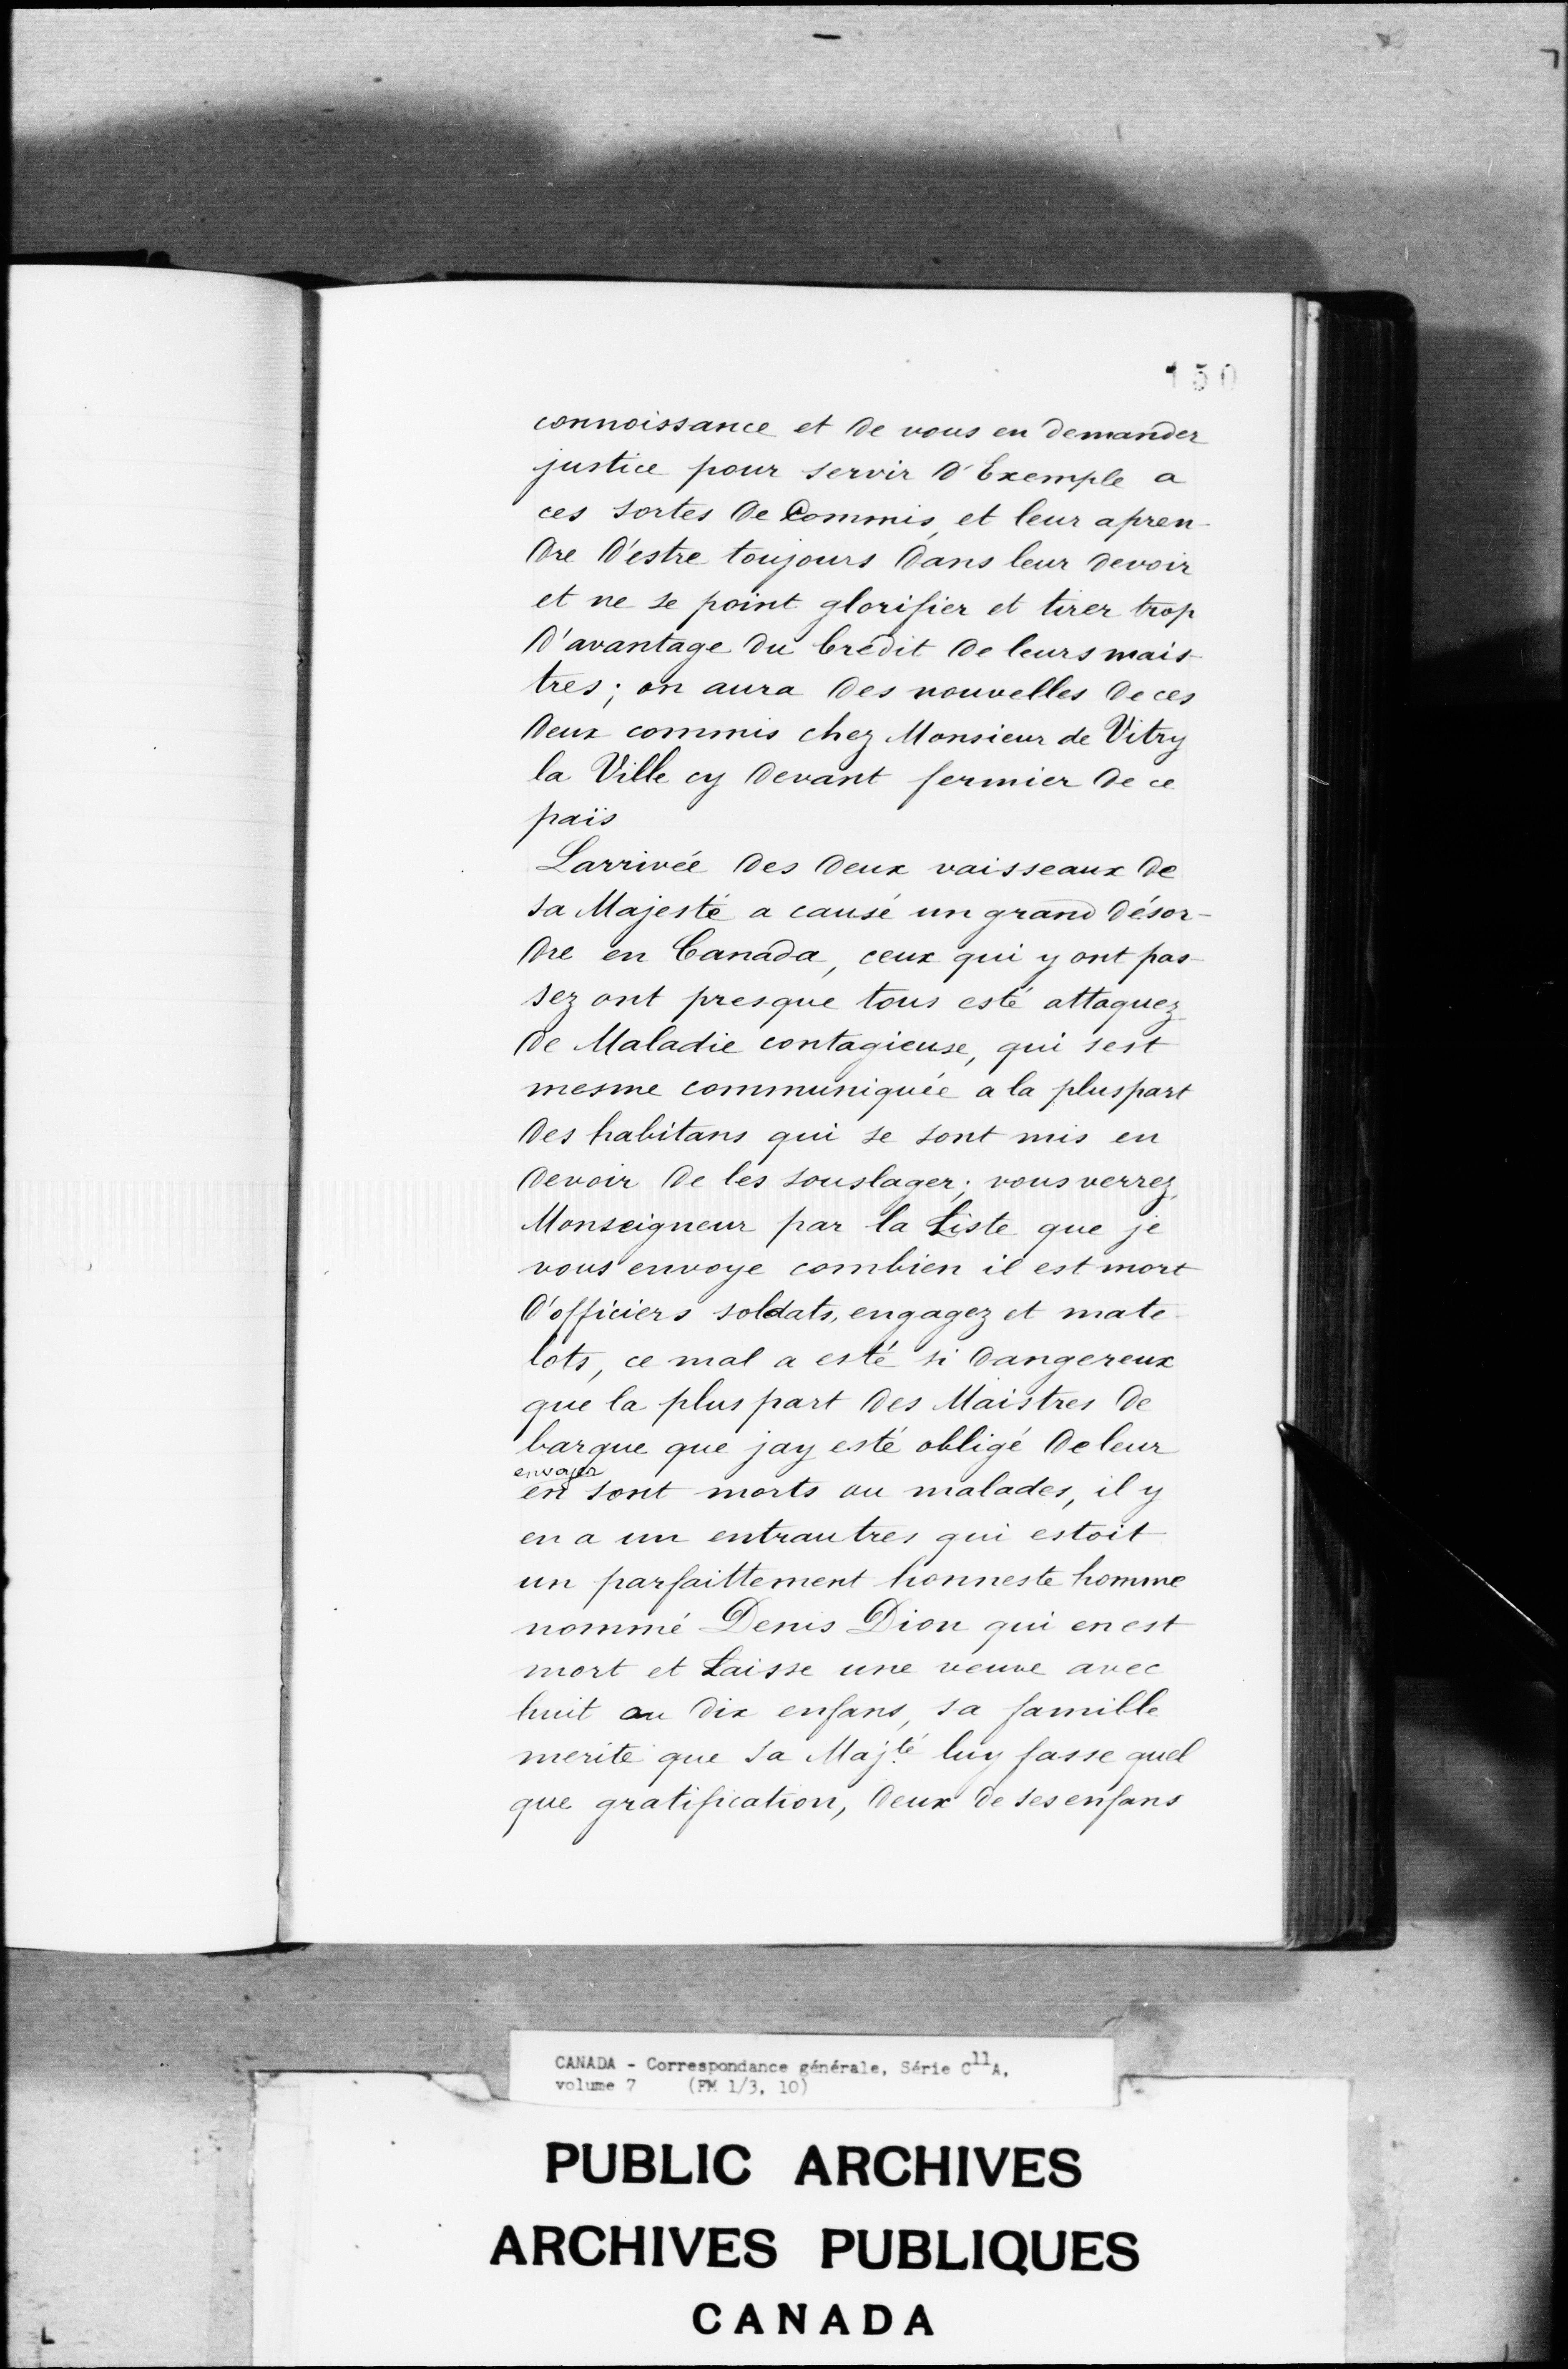 150
connoissance et de vous en demander
justice pour servir d'Exemple a
ces sortes de Commis, et leur apren-
dre d'estre toujours dans leur devoir
et ne se point glorifier et tirer trop
d'avantage du Credit de leurs mais-
tres; on aura des nouvelles de ces
deux commis chez Monsieur de Vitry
la Ville cy devant fermier de ce
païs
Larrivée des deux vaisseaux de
sa Majesté a causé un grand désor-
dre en Canada, ceux qui y ont pas-
sez ont presque tous esté attaquez
de Maladie contagieuse, qui sest
mesme communiquée a la pluspart
des habitans qui se sont mis en
devoir de les souslager; vous verrez,
Monseigneur par la Liste que je
vous envoye combien il est mort
d'officiers soldats, engagez et mate-
lots, ce mal a esté si dangereux
que la plus part des Maistres de
barque que jay esté obligé de leur
envoyer
en sont morts ou malades, il y
en a un entrautres qui estoit
un parfaittement honneste homme
nommé Denis Dion qui en est
mort et Laisse une veuve avec
huit ou dix enfans, sa famille
merite que sa Maj.té luy fasse quel
que gratification, deux de ses enfans
CANADA - Correspondance générale, Série C11A,
volume 7 (FM 1/3, 10)
PUBLIC ARCHIVES
ARCHIVES PUBLIQUES
CANADA